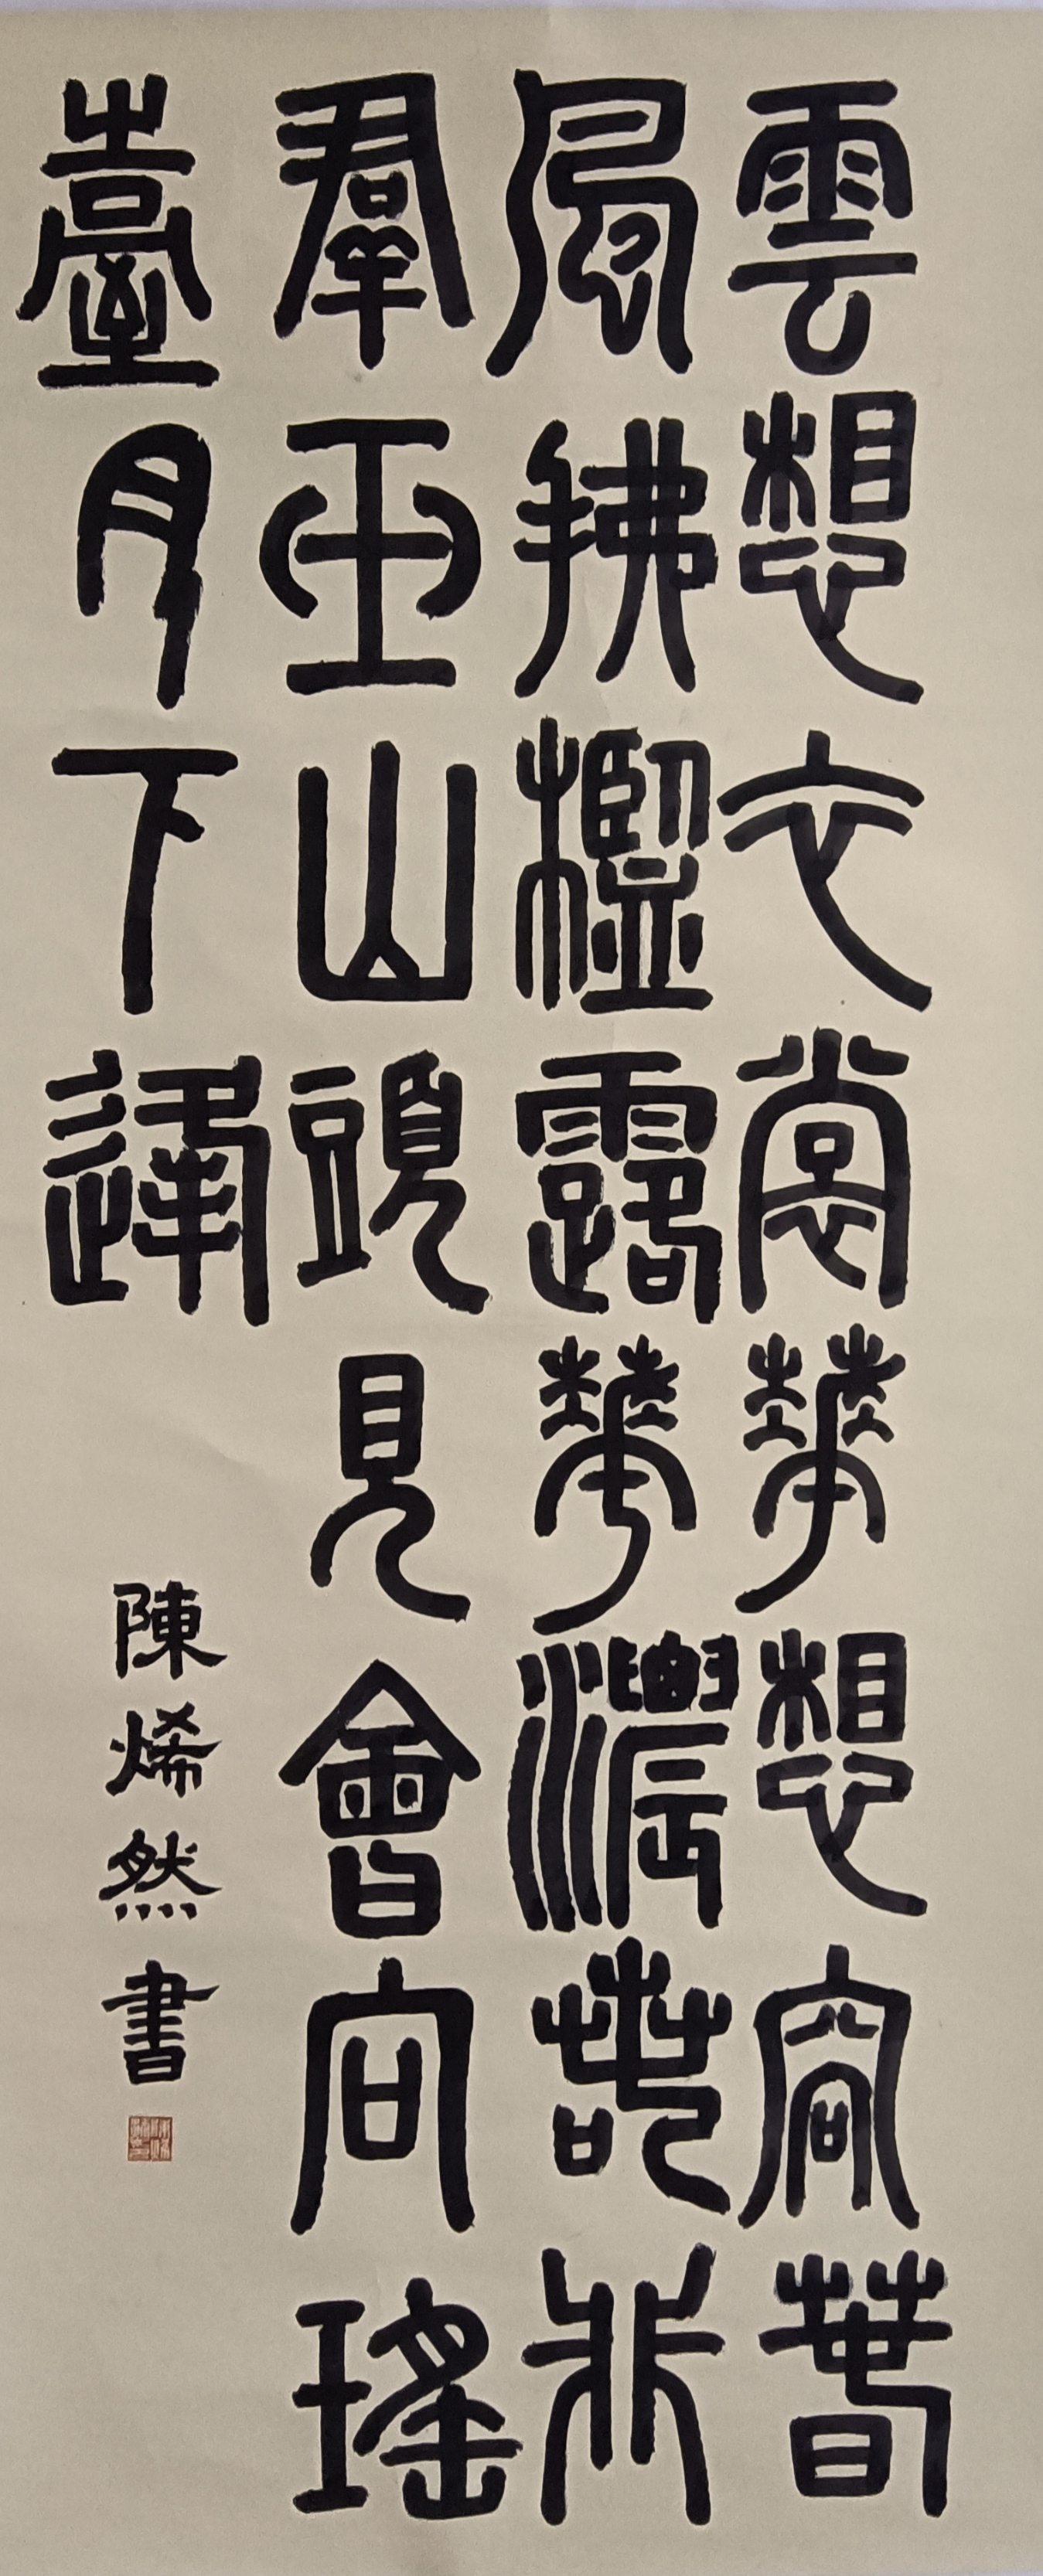 雲想衣裳華想容春
風拂檻露華濃若非
羣玉山頭見會向瑤
臺月下逢
陳烯然書